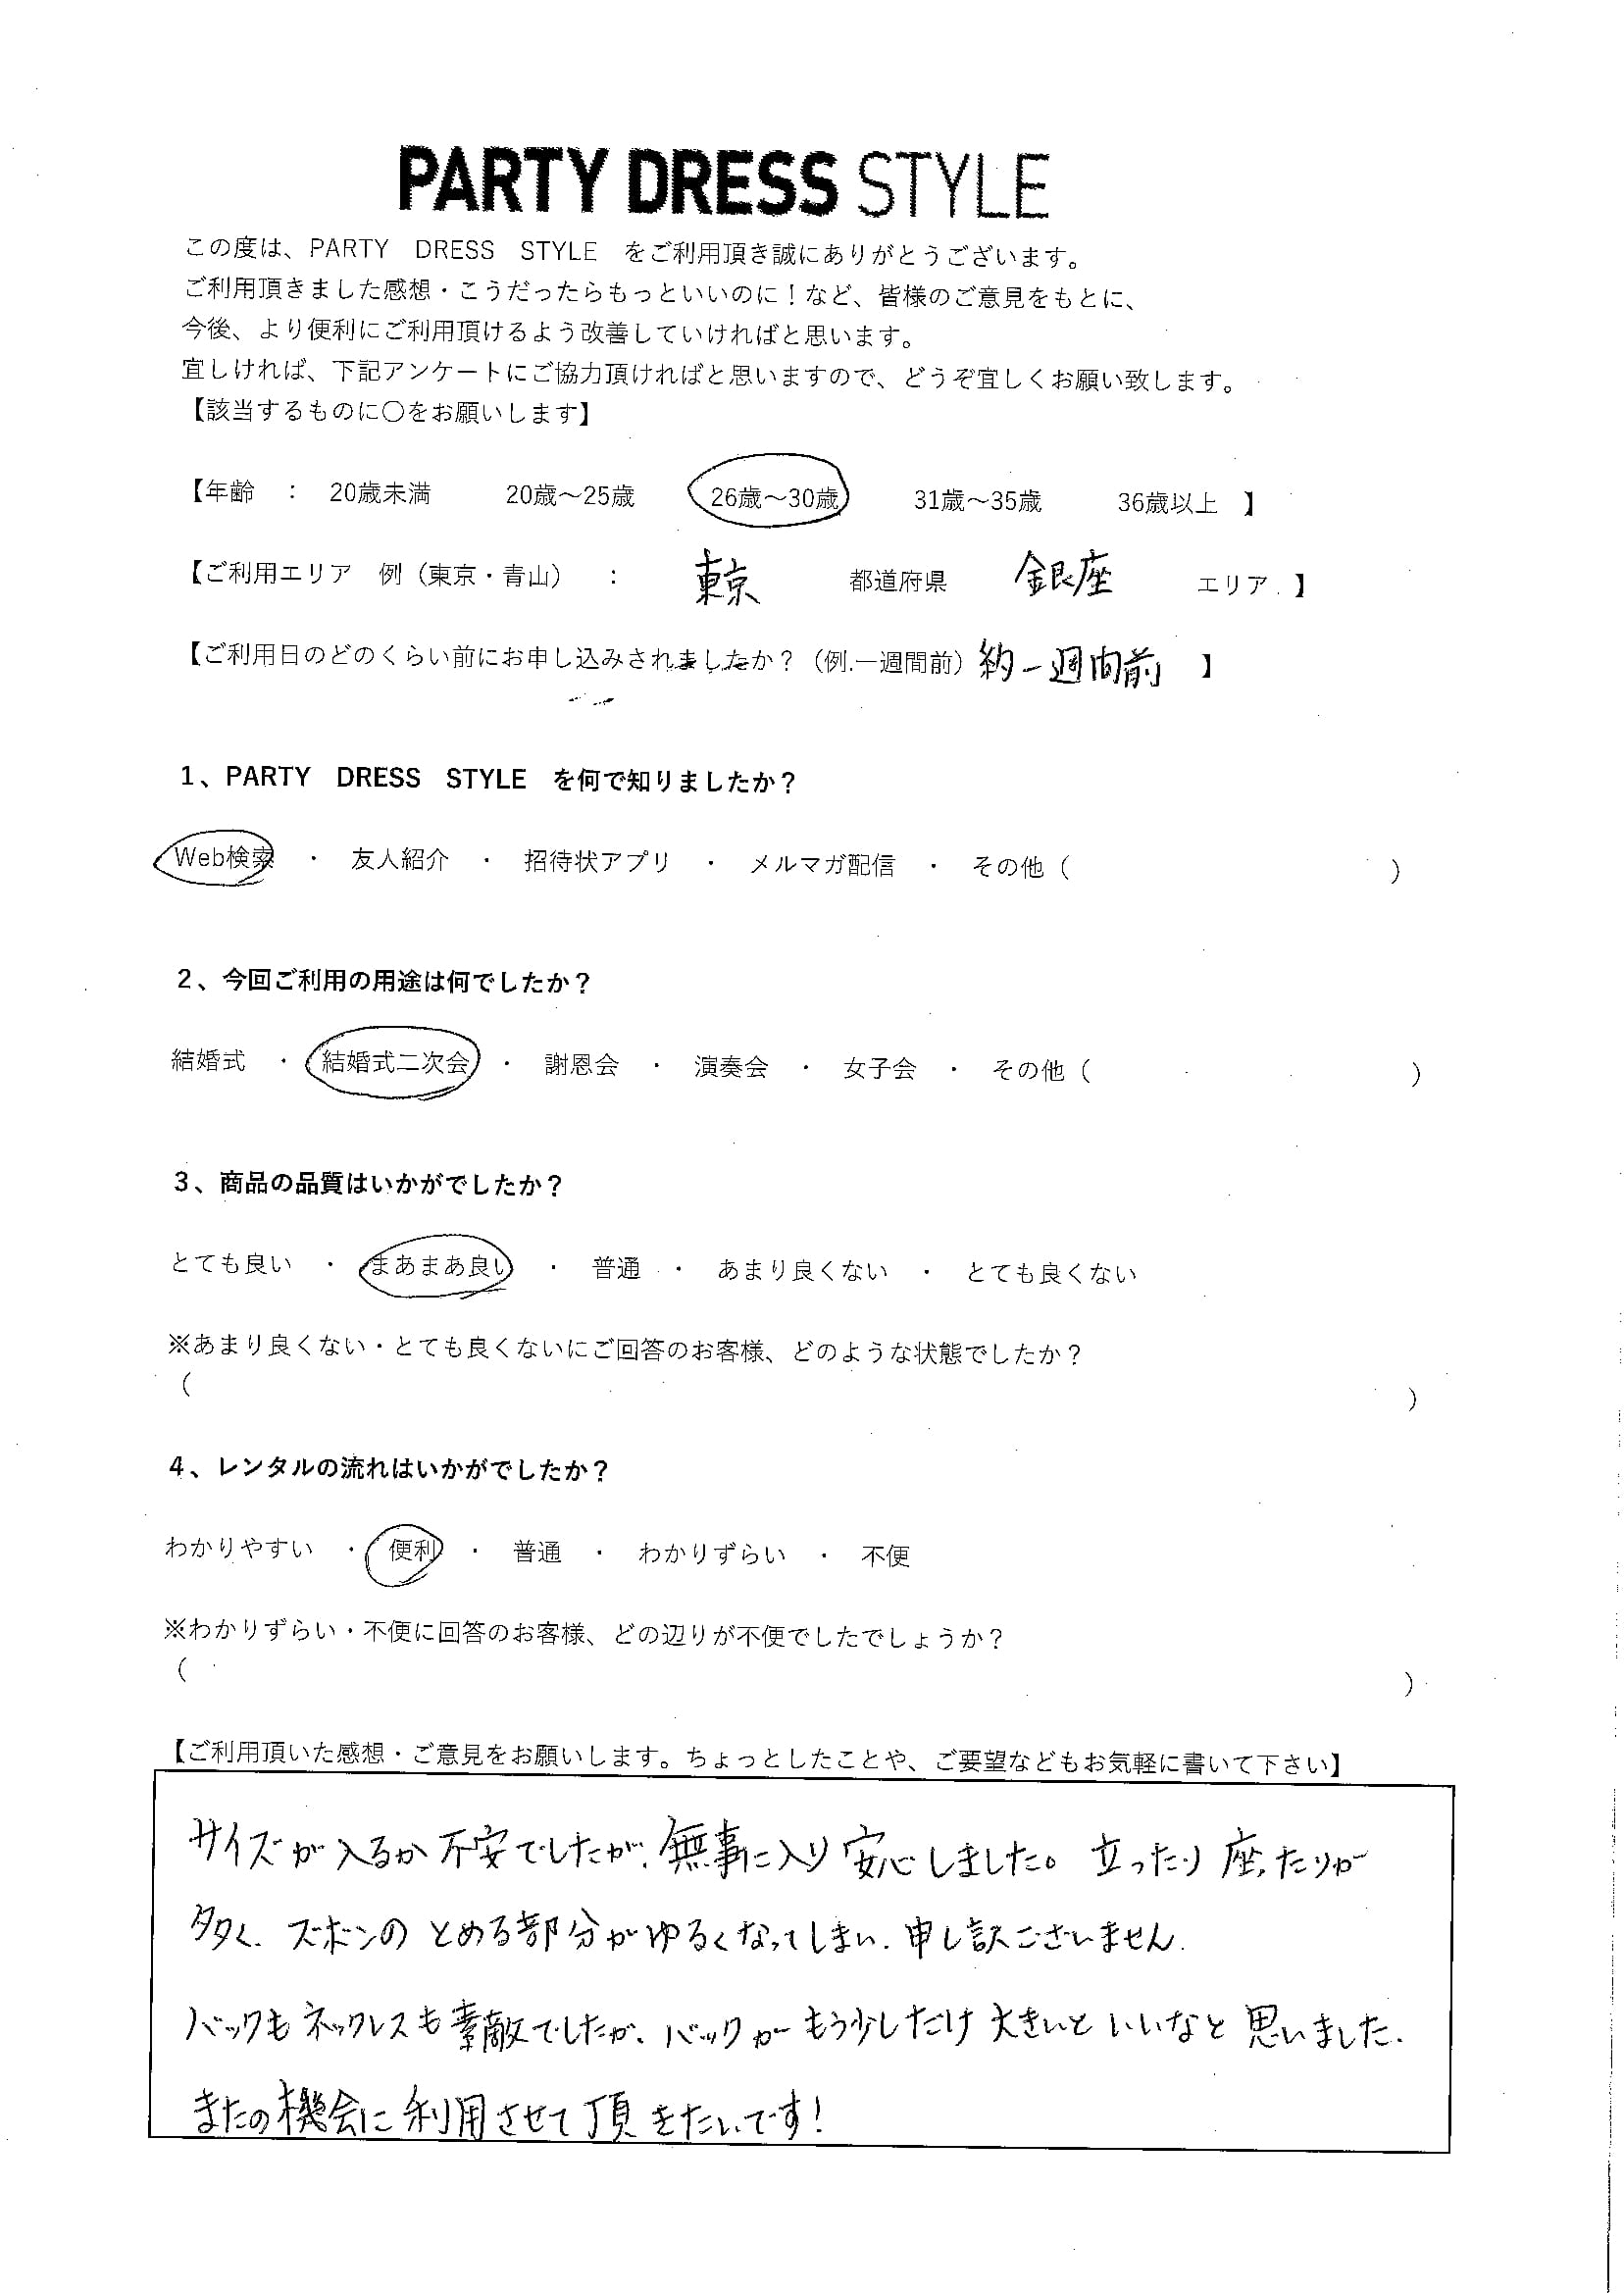 PARTY DRESS STYLE
この度は、PARTY DRESS STYLE をご利用頂き誠にありがとうございます。
ご利用頂きました感想・こうだったらもっといいのに！など、皆様のご意見をもとに、
今後、より便利にご利用頂けるよう改善していければと思います。
宜しければ、下記アンケートにご協力頂ければと思いますので、どうぞ宜しくお願い致します。
【該当するものに〇をお願いします】
【年齢 ： 20歳未満 20歳～25歳 26歳～30歳 31歳～35歳 36歳以上 】
【ご利用エリア 例（東京・青山） ： 東京 都道府県 銀座 エリア 】
【ご利用日のどのくらい前にお申し込みされましたか？（例.一週間前）約一週間前 】
1、PARTY DRESS STYLE を何で知りましたか？
Web検索 ・ 友人紹介 ・ 招待状アプリ ・ メルマガ配信 ・ その他（ ）
2、今回ご利用の用途は何でしたか？
結婚式 ・ 結婚式二次会 ・ 謝恩会 ・ 演奏会 ・ 女子会 ・ その他（ ）
3、商品の品質はいかがでしたか？
とても良い ・ まあまあ良い ・ 普通 ・ あまり良くない ・ とても良くない
※あまり良くない・とても良くないにご回答のお客様、どのような状態でしたか？
（ ）
4、レンタルの流れはいかがでしたか？
わかりやすい ・ 便利 ・ 普通 ・ わかりずらい ・ 不便
※わかりずらい・不便に回答のお客様、どの辺りが不便でしたでしょうか？
（ ）
【ご利用頂いた感想・ご意見をお願いします。ちょっとしたことや、ご要望などもお気軽に書いて下さい】
サイズが入るか不安でしたが、無事に入り安心しました。立ったり座ったりが
多く、ズボンのとめる部分がゆるくなってしまい、申し訳ございません。
バックもネックレスも素敵でしたが、バックがもう少しだけ大きいといいなと思いました。
またの機会に利用させて頂きたいです！